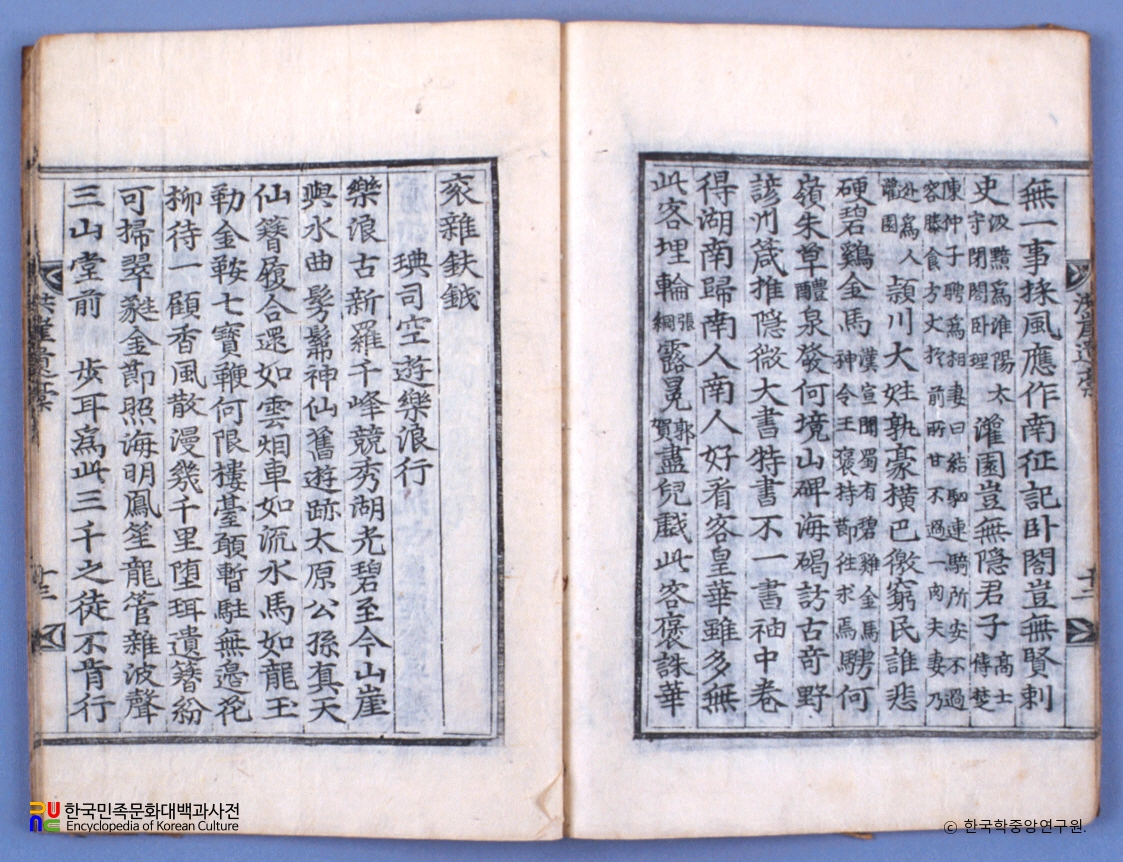 無一事採風應作南征記卧閣豈無賢刺
史汲黯爲淮陽太守閉閤卧理灌園豈無隱君子高士傳楚
陳仲子聘爲相妻曰結駟連騎所安不過容膝食方丈於前所甘不過一肉夫妻乃
逃爲人灌園頴川大姓孰豪橫巴徼窮民誰悲
硬碧鷄金馬漢宣聞蜀有碧雞金馬神令王褒持節往求焉騁何
嶺朱草醴泉發何境山碑海碣訪古奇野
諺州箴推隱微大書特書不一書袖中卷
得湖南歸南人南人好看客皇華雖多無
此客埋輪張綱露冕郭賀盡兒戱此客褒誅華
十二
衮雜鈇鉞
琠司空遊樂浪行
樂浪古新羅千峰競秀湖光碧至今山崖
與水曲髣髴神仙舊遊跡太原公孫真天
仙簪履合還如雲烟車如流水馬如龍玉
勒金鞍七寶鞭何限樓臺願暫駐無邊花
柳待一顧香風散漫幾千里堕珥遺簪紛
可掃翠蕤金節照海明鳳笙龍管雜波聲
三山堂前 步耳爲此三千之徒不肯行
十三
한국민족문화대백과사전
Encyclopedia of Korean Culture
© 한국학중앙연구원.